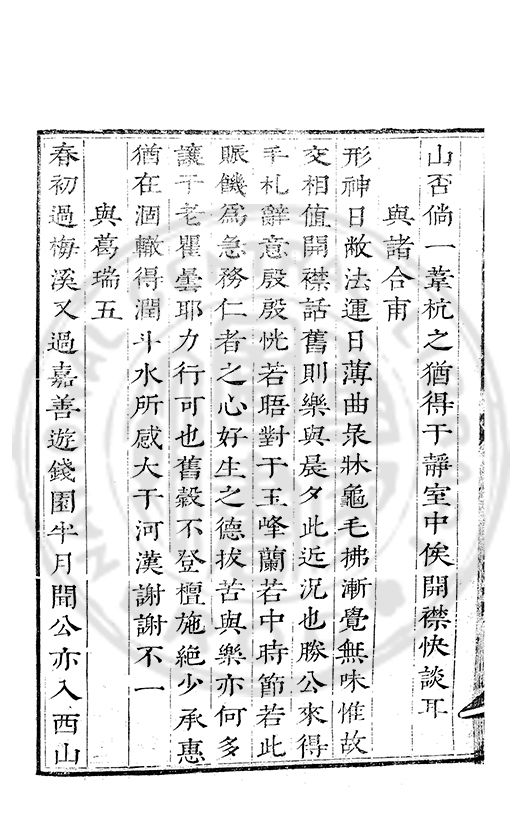 山否倘一葦杭之猶得于靜室中俟開襟快談耳
與諸合甫
形神日敝法運日薄曲彔牀龜毛拂漸覺無味惟故
交相值開襟話舊則樂與晨夕此近况也勝公來得
手札辭意殷殷恍若晤對于玉峰蘭若中時節若此
賑饑爲急務仁者之心好生之德拔苦與樂亦何多
讓于老瞿曇耶力行可也舊穀不登檀施絶少承惠
猶在涸轍得潤斗水所感大于河漢謝謝不一
與葛瑞五
春初過梅溪又過嘉善遊錢園半月聞公亦入西山